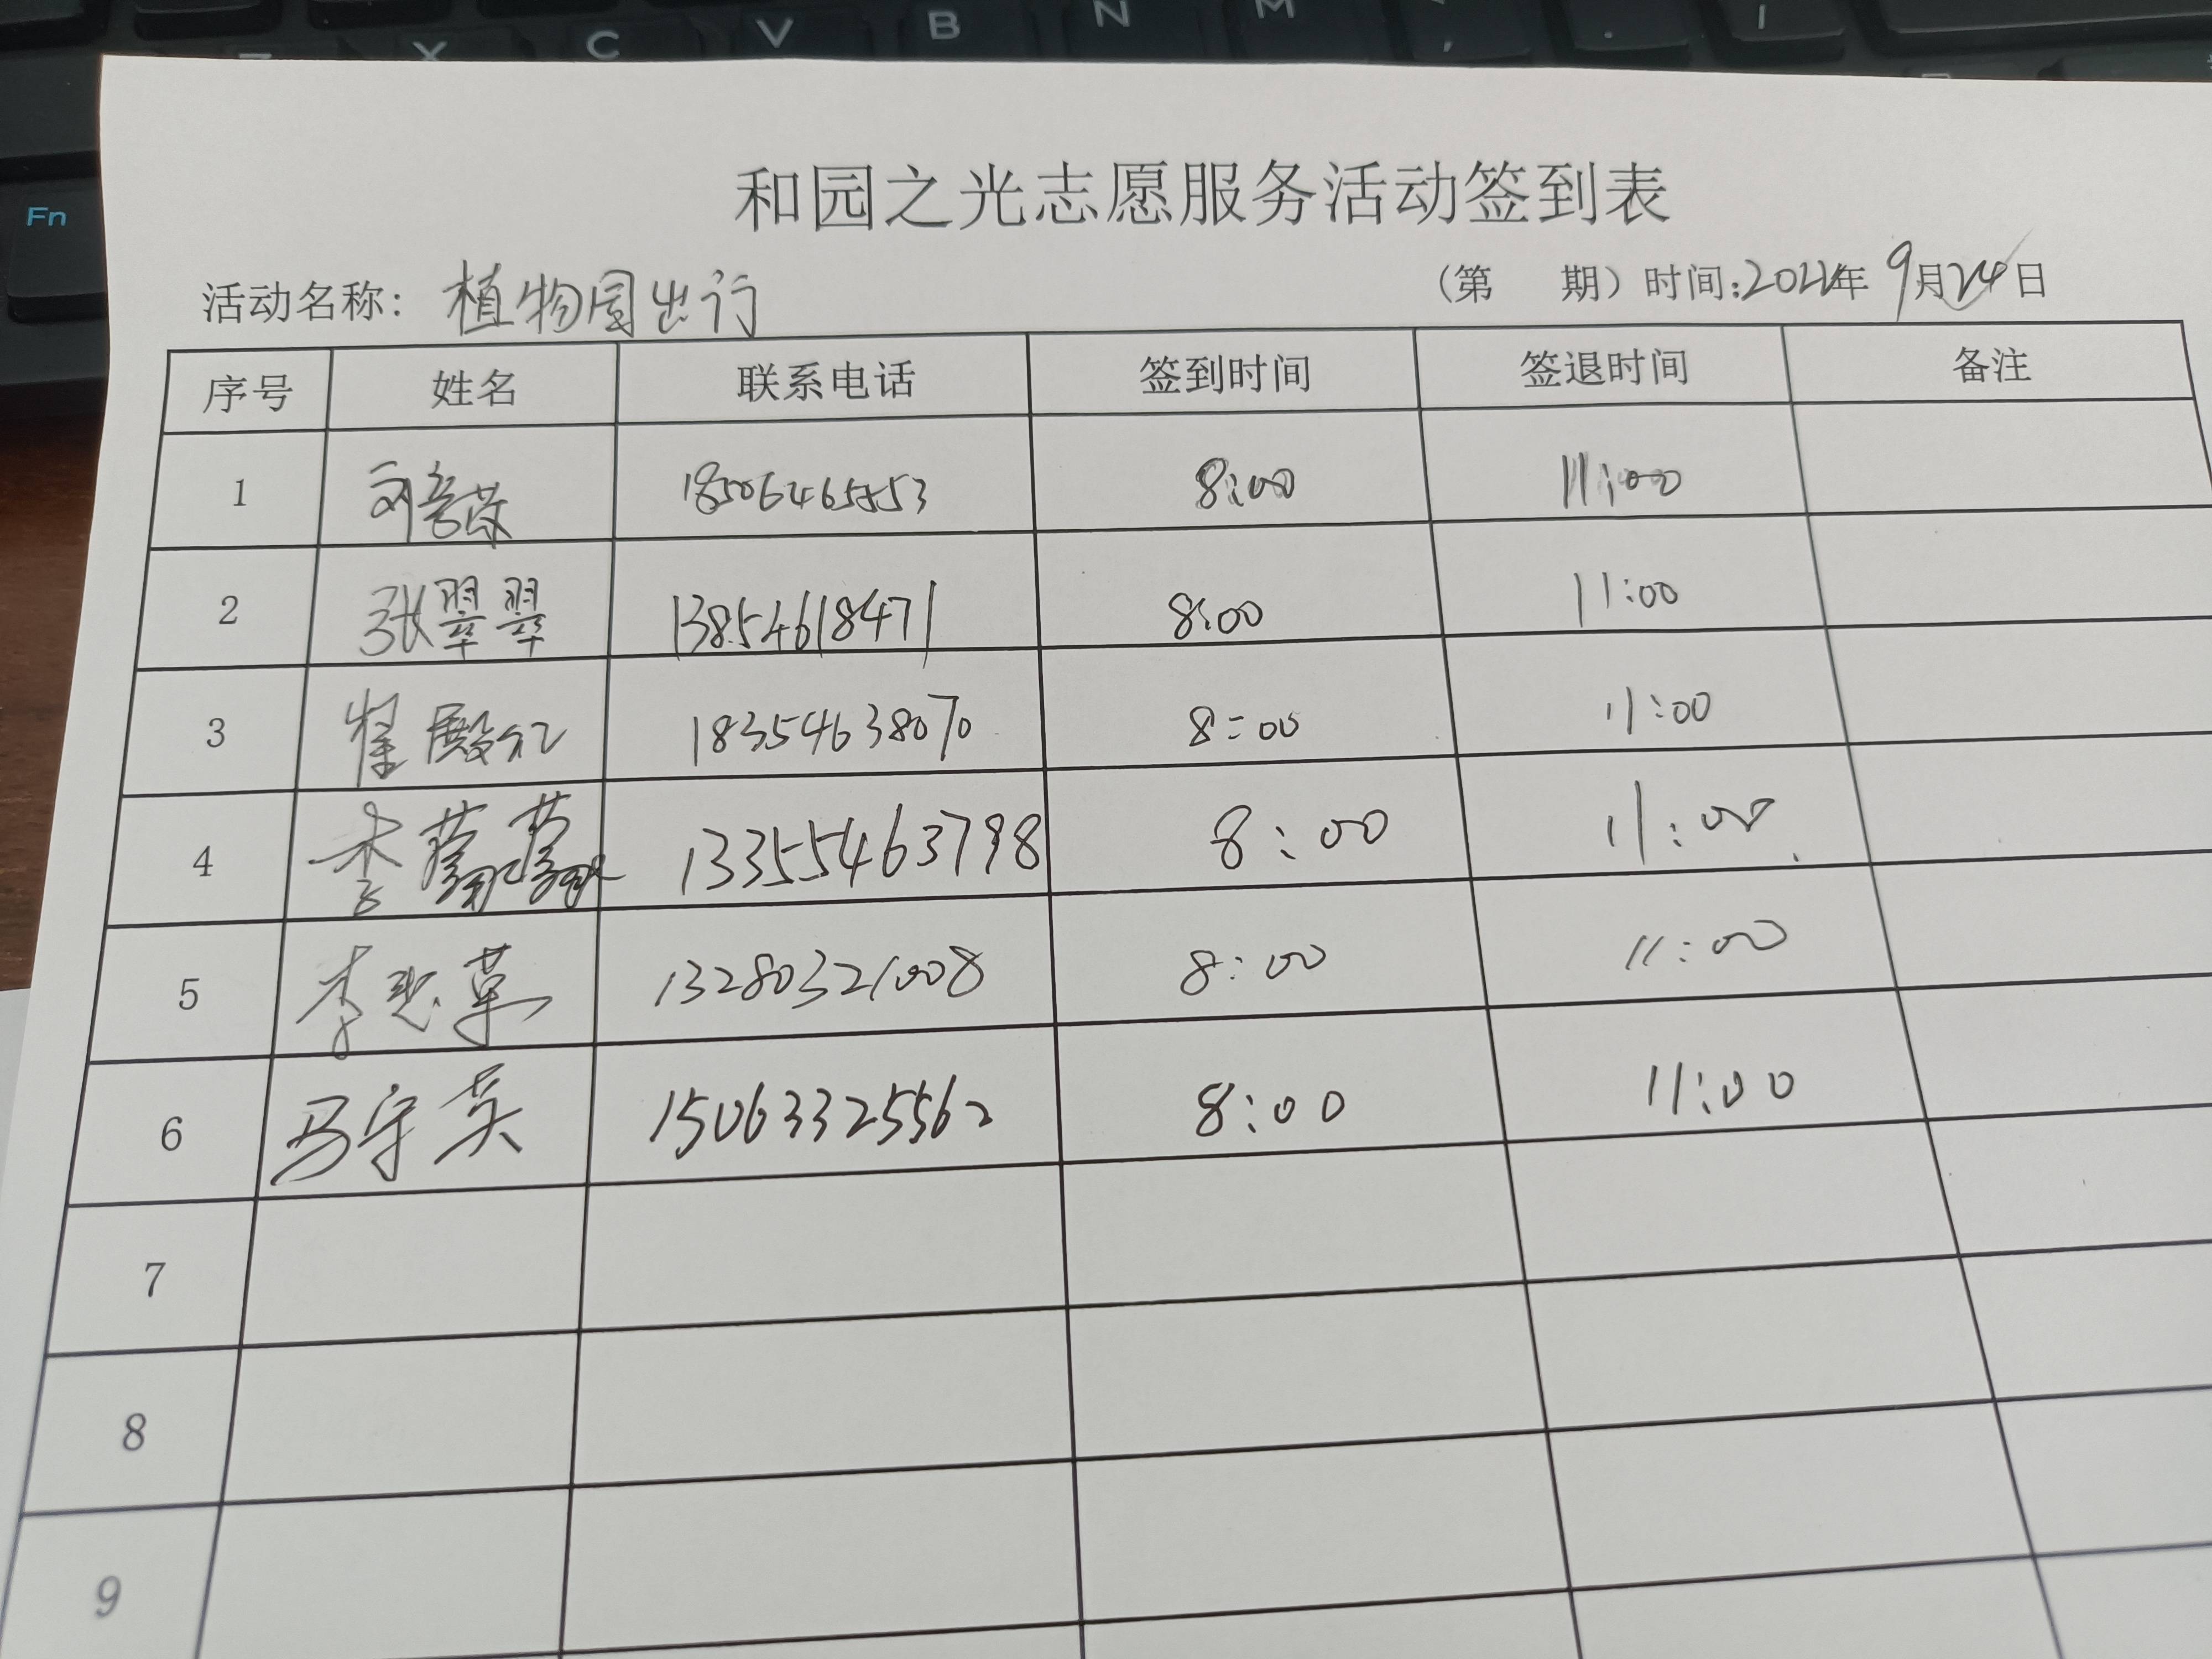 X C V B N M , .
Fn
和园之光志愿服务活动签到表
活动名称：植物园出行 （第 期）时间：2022年 9月24日
序号 姓名 联系电话 签到时间 签退时间 备注
1 刘 18506465553 8:00 11:00
2 张翠翠 13854618471 8:00 11:00
3 崔殿 18354638070 8:00 11:00
4 李 13355463798 8:00 11:00
5 李 13280321008 8:00 11:00
6 马守英 15063325562 8:00 11:00
7
8
9